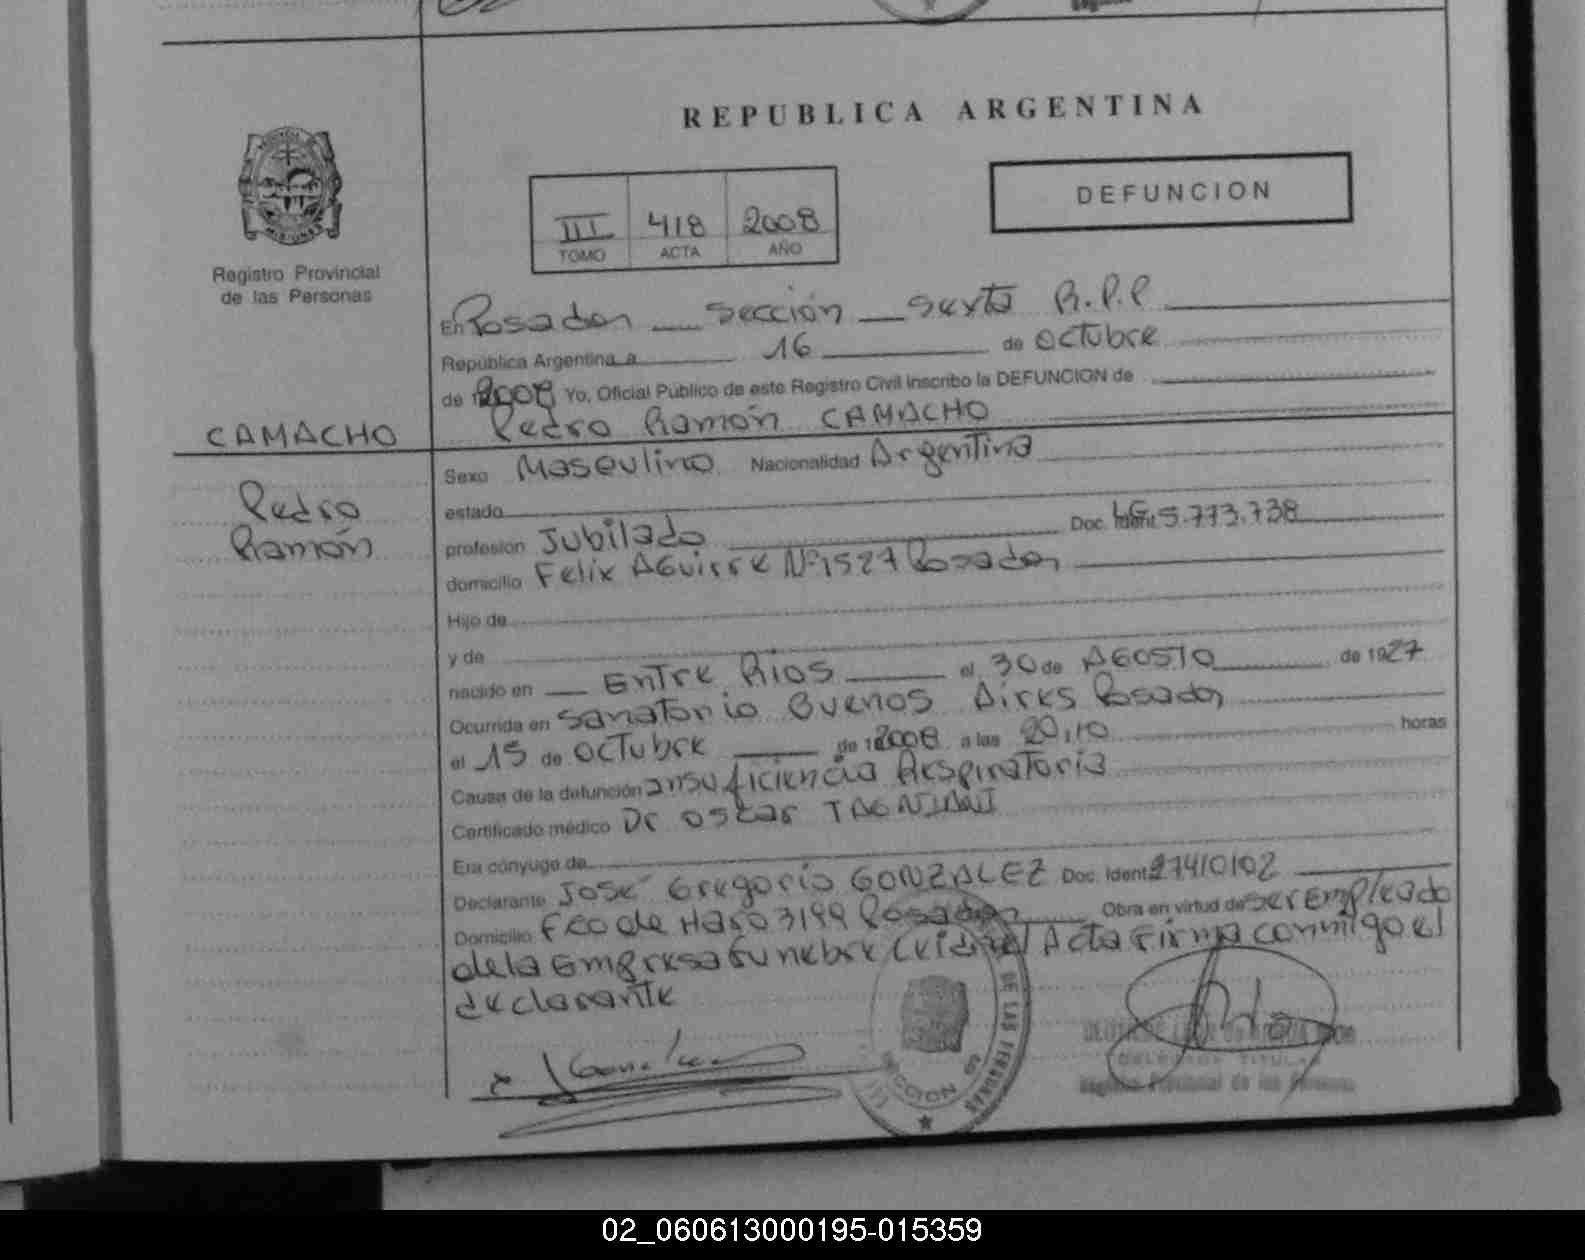 REPUBLICA ARGENTINA
MISIONES
Registro Provincial
de las Personas
III 418 2008
TOMO ACTA AÑO
DEFUNCION
En Posadas sección sexta R.P.P
República Argentina a 16 de octubre
de 2008 Yo, Oficial Público de este Registro Civil inscribo la DEFUNCION de
Pedro Ramón CAMACHO
CAMACHO
Pedro
Ramón
Sexo Masculino Nacionalidad Argentina
estado
profesion Jubilado Doc. Ident. 5.773.738
domicilio Felix Aguirre Nº 1527 Posadas
Hijo de
y de
nacido en Entre Rios el 30 de AGOSTO de 1927
Ocurrida en Sanatorio Buenos Aires Posadas
el 15 de octubre de 2008 a las 20,10 horas
Causa de la defunción insuficiencia Respiratoria
Certificado médico Dr oscar
Era cónyuge de
Declarante José Gregorio GONZALEZ Doc. Ident. 27410102
Domicilio Fco de Haro 3199 Posadas Obra en virtud de ser Empleado
de la Empresa funebre Leida el Acta Firma conmigo el
declarante
DE LAS PERSONAS
SECCION
DELEGADA TITULAR
Registro Provincial de las Personas
02_060613000195-015359